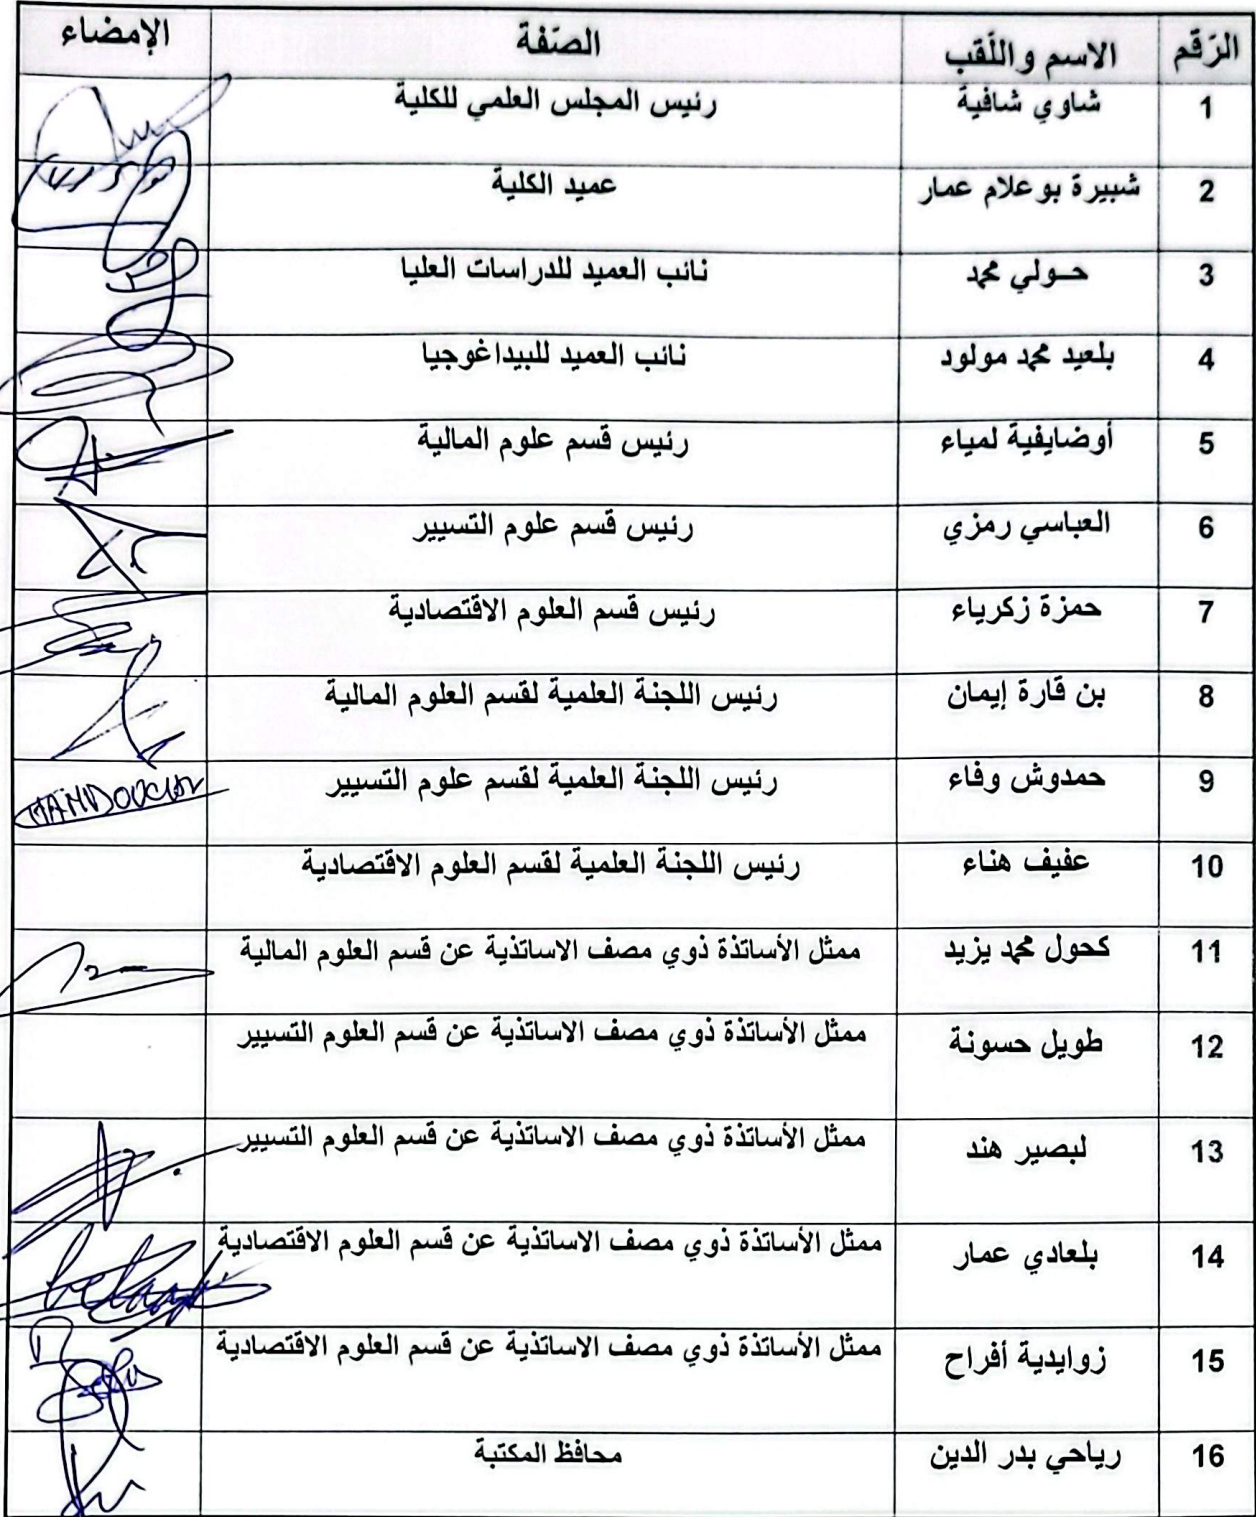 الرّقم الاسم واللّقب الصّفة الإمضاء
1 شاوي شافية رئيس المجلس العلمي للكلية
2 شبيرة بوعلام عمار عميد الكلية
3 حولي محمد نائب العميد للدراسات العليا
4 بلعيد محمد مولود نائب العميد للبيداغوجيا
5 أوضايفية لمياء رئيس قسم علوم المالية
6 العباسي رمزي رئيس قسم علوم التسيير
7 حمزة زكرياء رئيس قسم العلوم الاقتصادية
8 بن قارة إيمان رئيس اللجنة العلمية لقسم العلوم المالية
9 حمدوش وفاء رئيس اللجنة العلمية لقسم علوم التسيير
10 عفيف هناء رئيس اللجنة العلمية لقسم العلوم الاقتصادية
11 كحول محمد يزيد ممثل الأساتذة ذوي مصف الاساتذية عن قسم العلوم المالية
12 طويل حسونة ممثل الأساتذة ذوي مصف الاساتذية عن قسم العلوم التسيير
13 لبصير هند ممثل الأساتذة ذوي مصف الاساتذية عن قسم العلوم التسيير
14 بلعادي عمار ممثل الأساتذة ذوي مصف الاساتذية عن قسم العلوم الاقتصادية
15 زوايدية أفراح ممثل الأساتذة ذوي مصف الاساتذية عن قسم العلوم الاقتصادية
16 رياحي بدر الدين محافظ المكتبة